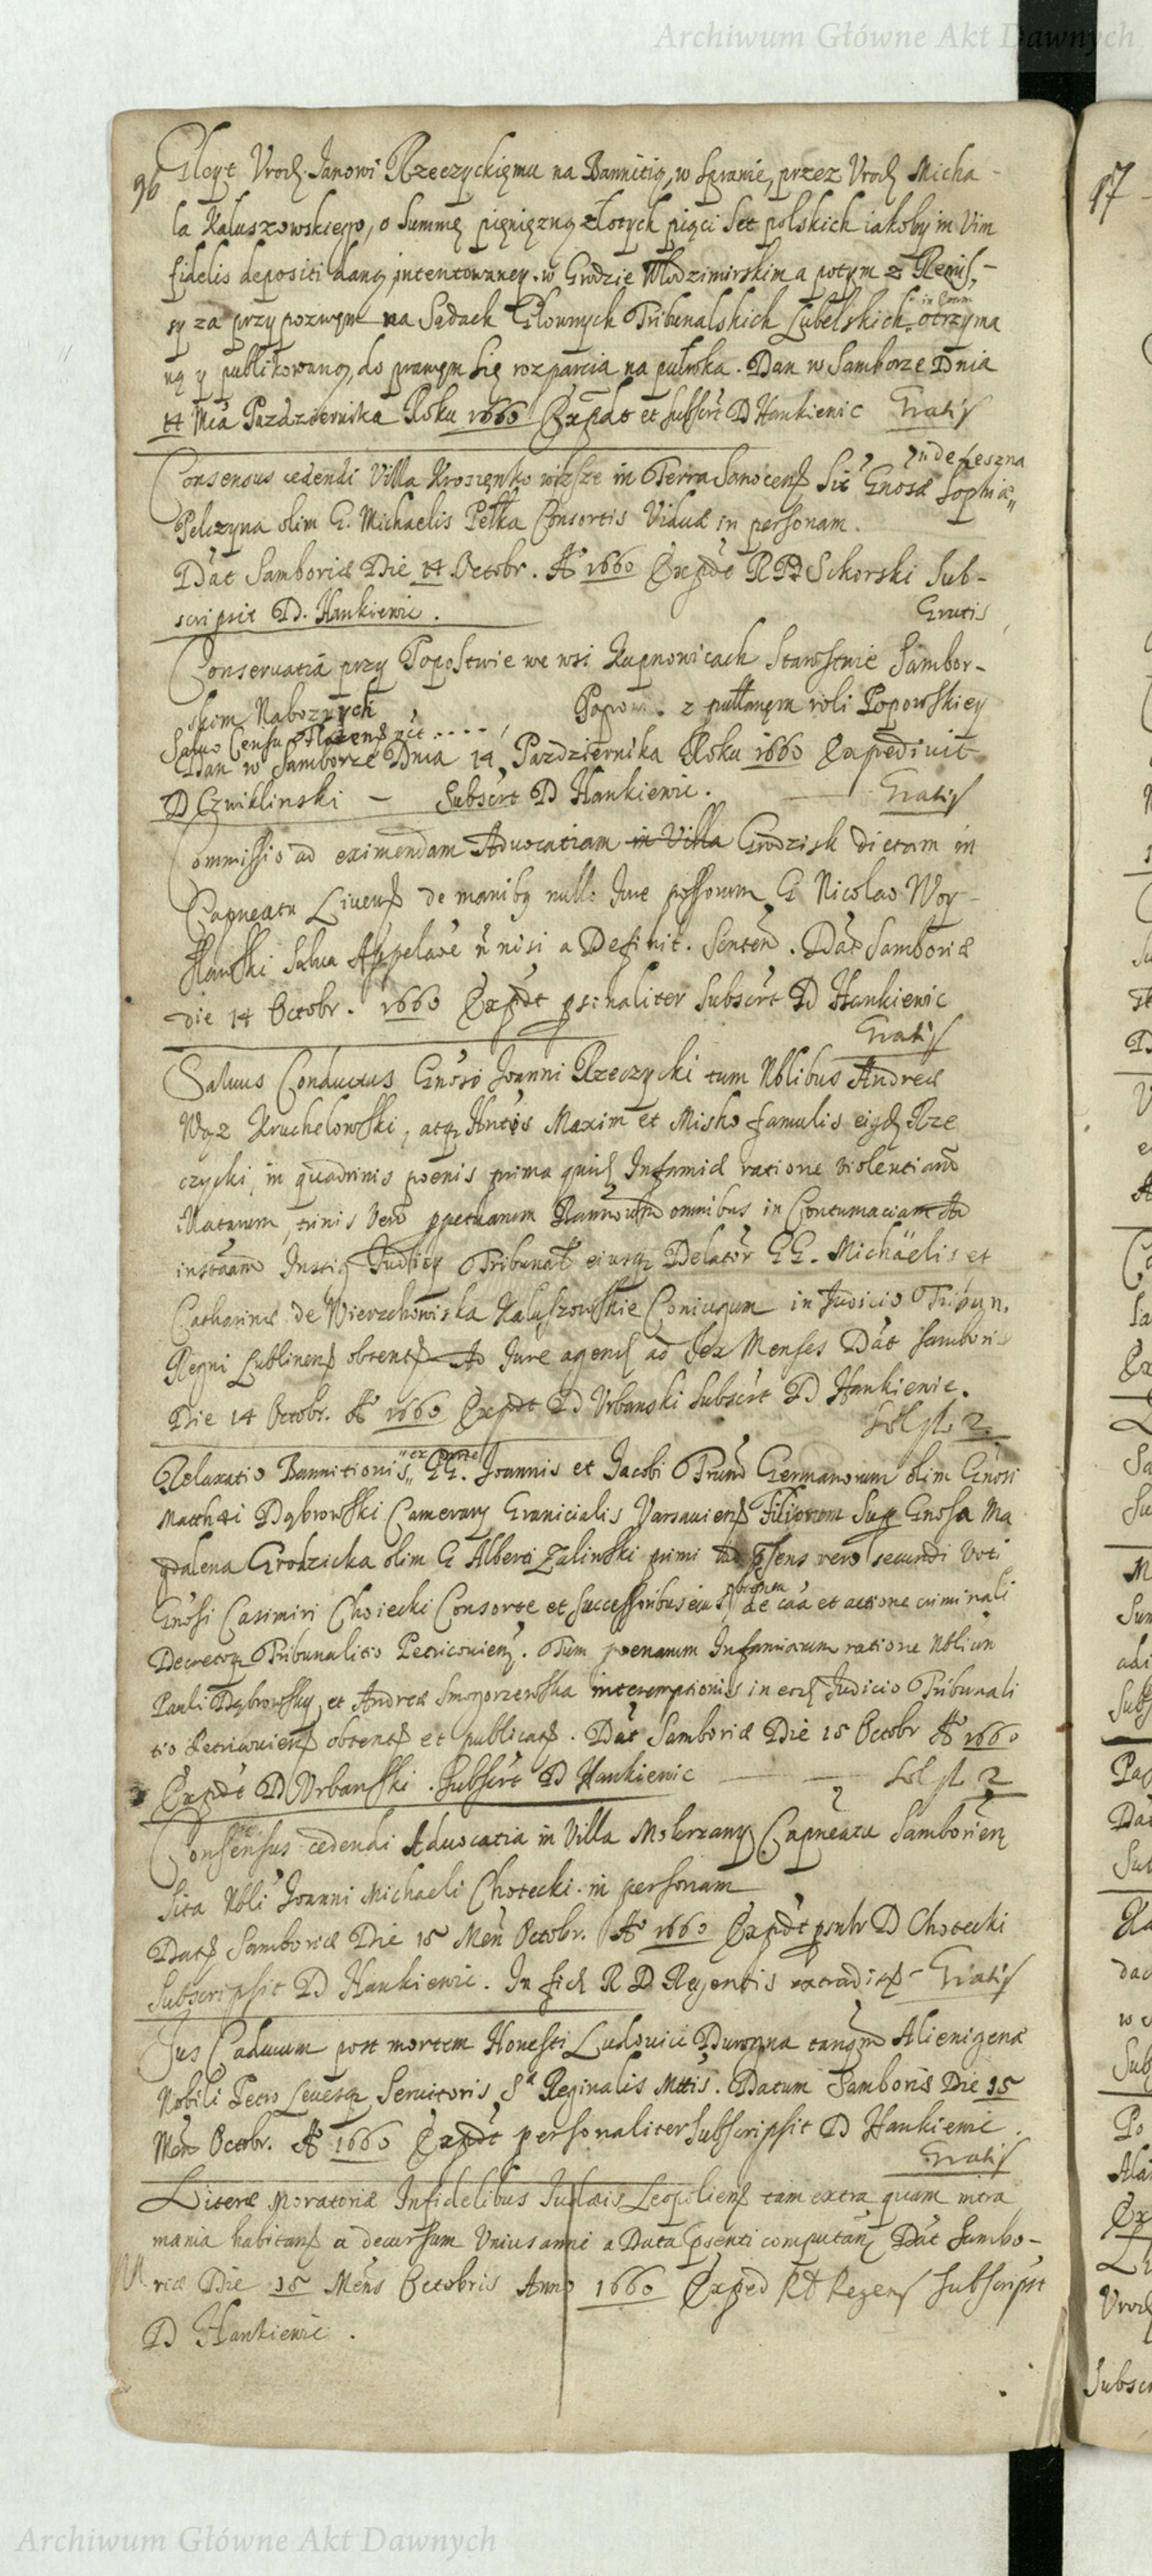 Archiwum Główne Akt Dawnych
96
Gleyt Vrodz. Janowi Rzeczyckięmu na Bannitią, w sprawie, przez Vrodz Micha-
la Kaluszowskiego, o summę pięnięzną złotych pięci set polskich iakoby in Vim
fidelis depositi daną, intentowaney w Grodzie Włodzimirskim a potym z Remis-
sy za przypozwem na Sądach Głownych Tribunalskich Lubelskich otrzyma
ną y publikowaną, do prawnęo się rozparcia na pułroka. Dan w Samborze Dnia
14 Mca Pazdziernika Roku 1660 Expdt et subscrt D Hankienic Gratis
Consensus cedendi Villa Krosięnko wizsze in Terra Sanocens Sit Gnosae Sophiae
Pelczyna olim G. Michaelis Pełka Consortis Viduae in personam.
Dat Samboriae Die 14 Octobr. Ao 1660 Expdt RPD Sikorski Sub-
scripsit D. Hankiewic.
Gratis
Conseruatia przy Popostwie we wsi Kupnowicach Starostwie Sambor-
skom Nabozych z połłanęm roli Popowskiey
Saluo Censu
Dan w Samborze Dnia 14 Pazdziernika Roku 1660 Expediuit
D Czwiklinski — Subscrt D Hankiewic. Gratis
Commissio ad eximendam Aduocatiam in Villa Grodzisk dictam in
Capneatu Liuens de manibus nullo Jure possorum G Nicolao Woy-
slawski Salua Appelaoe n nisi a Definit. Senten. Dat Samboriae
die 14 Octobr. 1660 Expdt psonaliter Subscrt D Hankiewic
Gratis
Saluus Conductus Gnoso Joanni Rzeczycki tum Nblibus Andreae
Wąz Kruchelowski, atq Hntis Maxim et Misko famulis eigd Rze
czycki, in quadrinis poenis prima quid Infamiae ratione violentiarum
illatarum, trinis vero ppetuarum Bannonum omnibus in Contumaciam Ad
instaam Instig Judicij Tribunal eiusq Delator GG. Michaëlis et
Catharinae de Wierzchowiska Kaluszowskie Coniugum in Judicio Tribun.
Regni Lublinens obtent Ad Jure agend ad sex Menses Dat Samboriae
Die 14 Octobr. Ao 1660 Expdt D Urbanski Subscrt D Hankiewic.
Sol fl 2
Relaxatio Bannitionis ex parte GG. Joannis et Jacobi Frum Germanorum olim Gnosi
Matthaei Dąbrowski Camerarij Granicialis Varsauiens Filiorum Sup Gnosa Ma
gdalena Grodzicka olim G Alberti Zalinski primi psens vero secundi Voti
Gnosi Casimiri Choiecki Consorte et successoribus eius obtenta de caa et actione criminali
Decretoq Tribunalitio Petricouien. Tum poenarum Infamiarum ratione Nblium
Pauli Dąbrowsky et Andreae Smogorzewska interemptionis in eod Judicio Tribunali
tio Petricouiens obtents et publicats. Dat Samboriae Die 15 Octobr Ao 1660
Expdt D Urbanski. Subscrt D Hankiewic — Sol fl 2
Consensus cedendi Aduocatia in Villa Mokrzany Capneatu Samborien
Sita Nbli Joanni Michaeli Chotecki in personam
Dats Samboriae Die 15 Men Octobr. Ao 1660 Expdt psnlr D Chotecki
Subscripsit D Hankiewic. In fid R D Regentis extradits — Gratis
Jus Caducum post mortem Honesti Ludouici Duwgna tanqm Alienigenae
Nobili Petro Leuesq Seruitoris Sae Reginalis Mttis. Datum Samboriae Die 15
Men Octobr. Ao 1660 Expdt personaliter Subscripsit D Hankiewic.
Gratis
Literae Moratoriae Infidelibus Judaeis Leopoliens tam extra quam intra
maenia habitans a decursum Vnius anni a Data psenti computan Dat Sambo-
riae Die 15 Mens Octobris Anno 1660 Exped RD Regens subscripsit
D Hankiewic.
Archiwum Główne Akt Dawnych